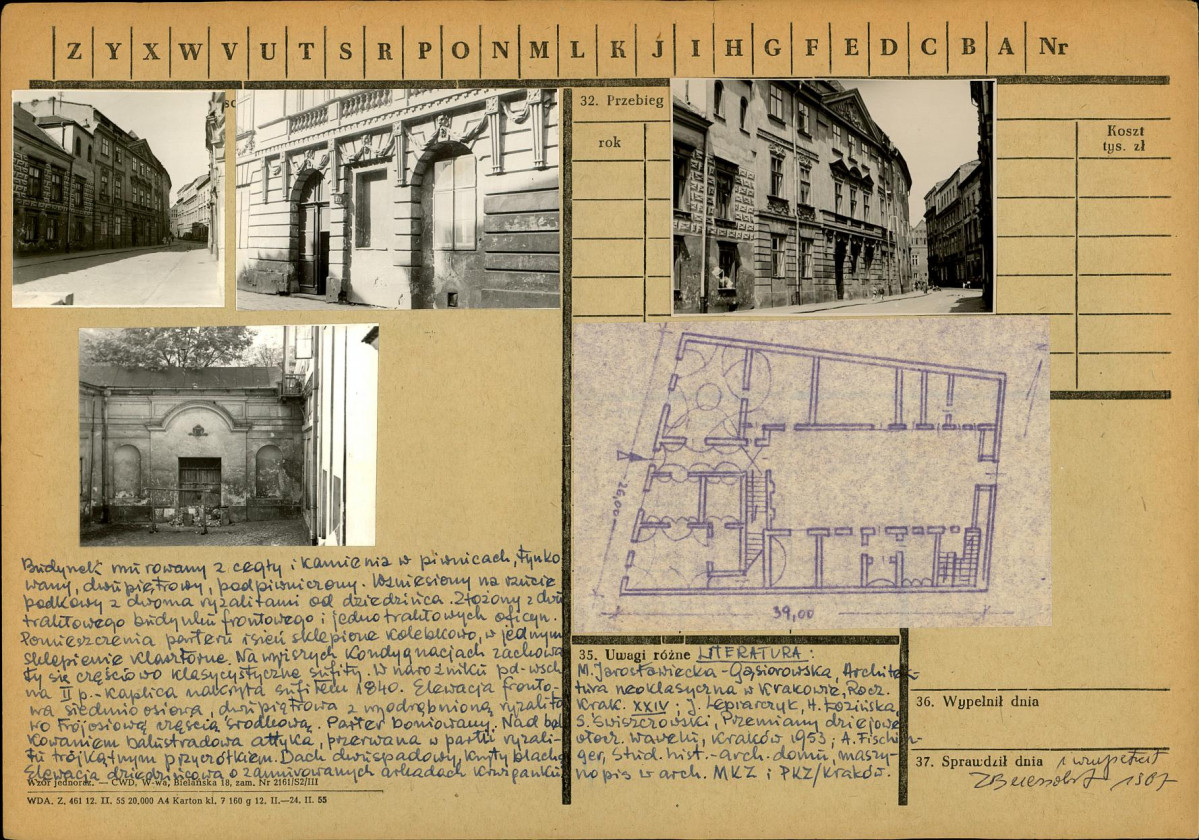 Z Y X W V U T S R P O N M L K J I H G F E D C B A Nr
32. Przebieg
rok
Koszt
tys. zł
26,00
39,00
Budynek murowany z cegły i kamienia w piwnicach, tynko
wany, dwupiętrowy, podpiwniczony. Wzniesiony na rzucie
podkowy z dwoma ryzalitami od dziedzińca. Złożony z dwu
traktowego budynku frontowego i jednotraktowych oficyn.
Pomieszczenia parteru i sień sklepione kolebkowo, w jednym
sklepienie klasztorne. Na wyższych kondygnacjach zachowa
ły się częściowo klasycystyczne sufity. W narożniku pd-wsch
na II p. - kaplica nakryta sufitem 1840. Elewacja fronto-
wa siedmioosiowa, dwupiętrowa z wyodrębnioną ryzalito
wo trójosiową częścią środkową. Parter boniowany. Nad bel
kowaniem balustradowa attyka, przerwana w partii ryzali-
tu trójkątnym przyczółkiem. Dach dwuspadowy, kryty blachą
Elewacja dziedzińcowa o zamurowanych arkadach
Wzór jednoraz. — CWD, W-wa, Bielańska 18, zam. Nr 2161/S2/III
WDA. Z. 461 12. II. 55 20,000 A4 Karton kl. 7 160 g 12. II.—24. II. 55
35. Uwagi różne LITERATURA:
M. Jarosławiecka-Gąsiorowska, Architek-
tura neoklasyczna w Krakowie, Rocz.
Krak. XXIV; J. Lepiarczyk, H. Łozińska,
S. Świszczowski, Przemiany dziejowe
otocz. Wawelu, Kraków 1953; A. Fischin-
ger, Stud. hist.-arch. domu, maszy-
nopis w arch. MKZ i PKZ/Kraków.
36. Wypełnił dnia
37. Sprawdził dnia